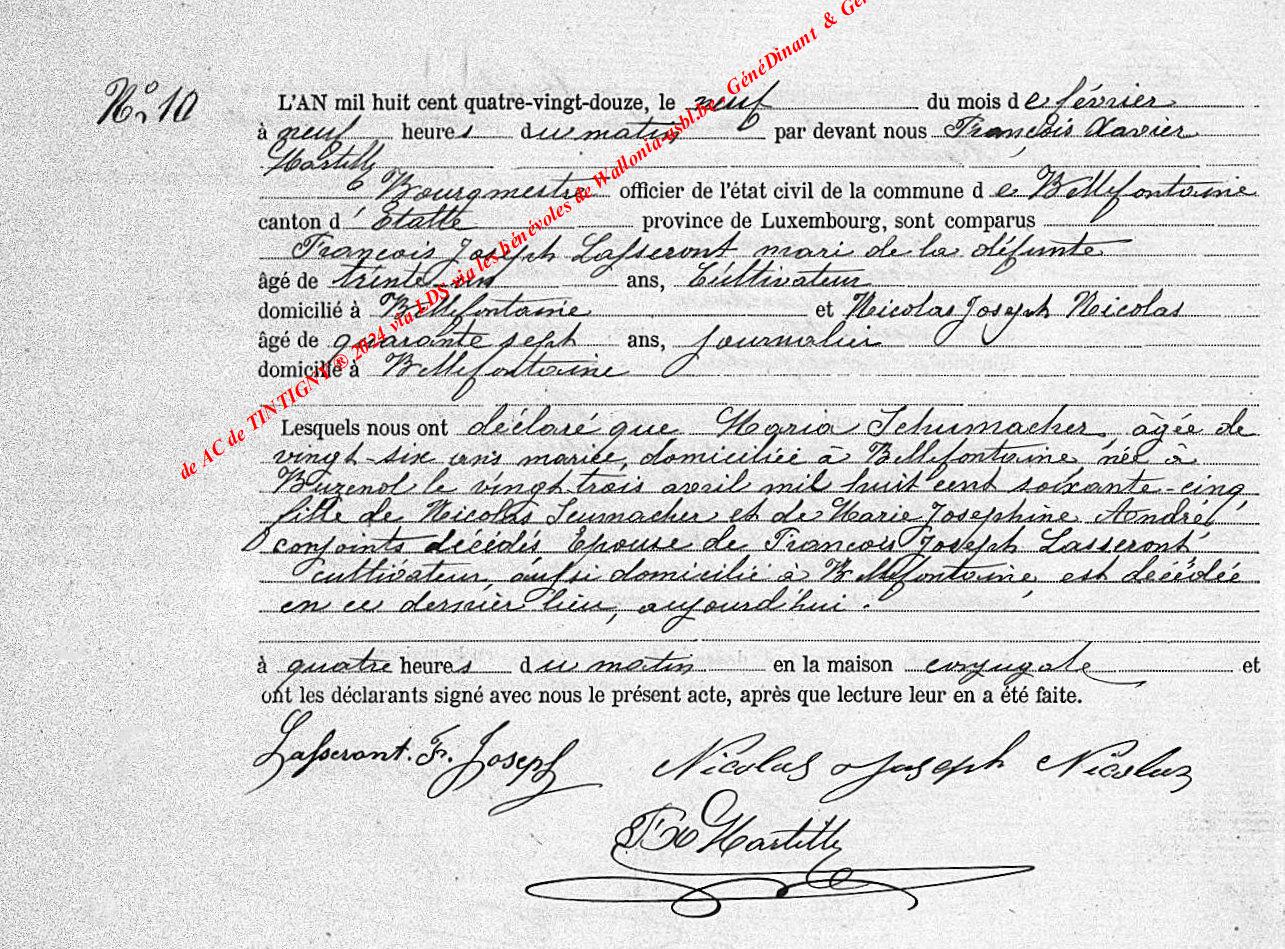 No 10
L'AN mil huit cent quatre-vingt-douze, le neuf du mois de février
à neuf heures du matin par devant nous François Xavier
Hartilly
Bourgmestre officier de l'état civil de la commune de Bellefontaine
canton d'Etalle province de Luxembourg, sont comparus
François Joseph Lasseront mari de la défunte
âgé de trente-un ans, Cultivateur
domicilié à Bellefontaine et Nicolas Joseph Nicolas
âgé de quarante sept ans, journalier
domicilié à Bellefontaine
Lesquels nous ont déclaré que Maria Schumacher, âgée de
vingt-six ans mariée, domiciliée à Bellefontaine, née à
Buzenol le vingt-trois avril mil huit cent soixante-cinq,
fille de Nicolas Scumacher et de Marie Josephine André,
conjoints décédés Epouse de François Joseph Lasseront,
cultivateur, aussi domicilié à Bellefontaine, est décédée
en ce dernier lieu, aujourd'hui.
à quatre heures du matin en la maison conjugale et
ont les déclarants signé avec nous le présent acte, après que lecture leur en a été faite.
Lasseront. Fr. Joseph Nicolas Joseph Nicolas
FX Hartilly
de AC de TINTIGNY ® 2024 via LDS via les bénévoles de Wallonia-asbl.be, GénéDinant & Gé